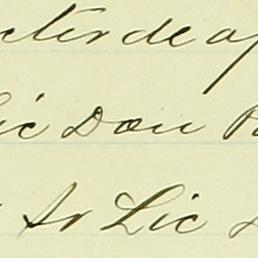 cter de ap
Lic Don R
Sr Lic